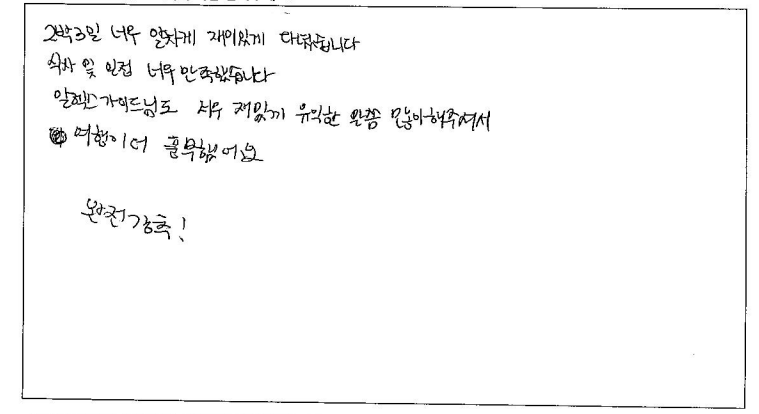 2박3일 너무 알차게 재미있게 다녔습니다
식사 및 인접 너무 만족했습니다
알렉스가이드님도 너무 재밌게 유익한 말씀 많이 해주셔서
여행이 더 훌륭했어요
완전강추!